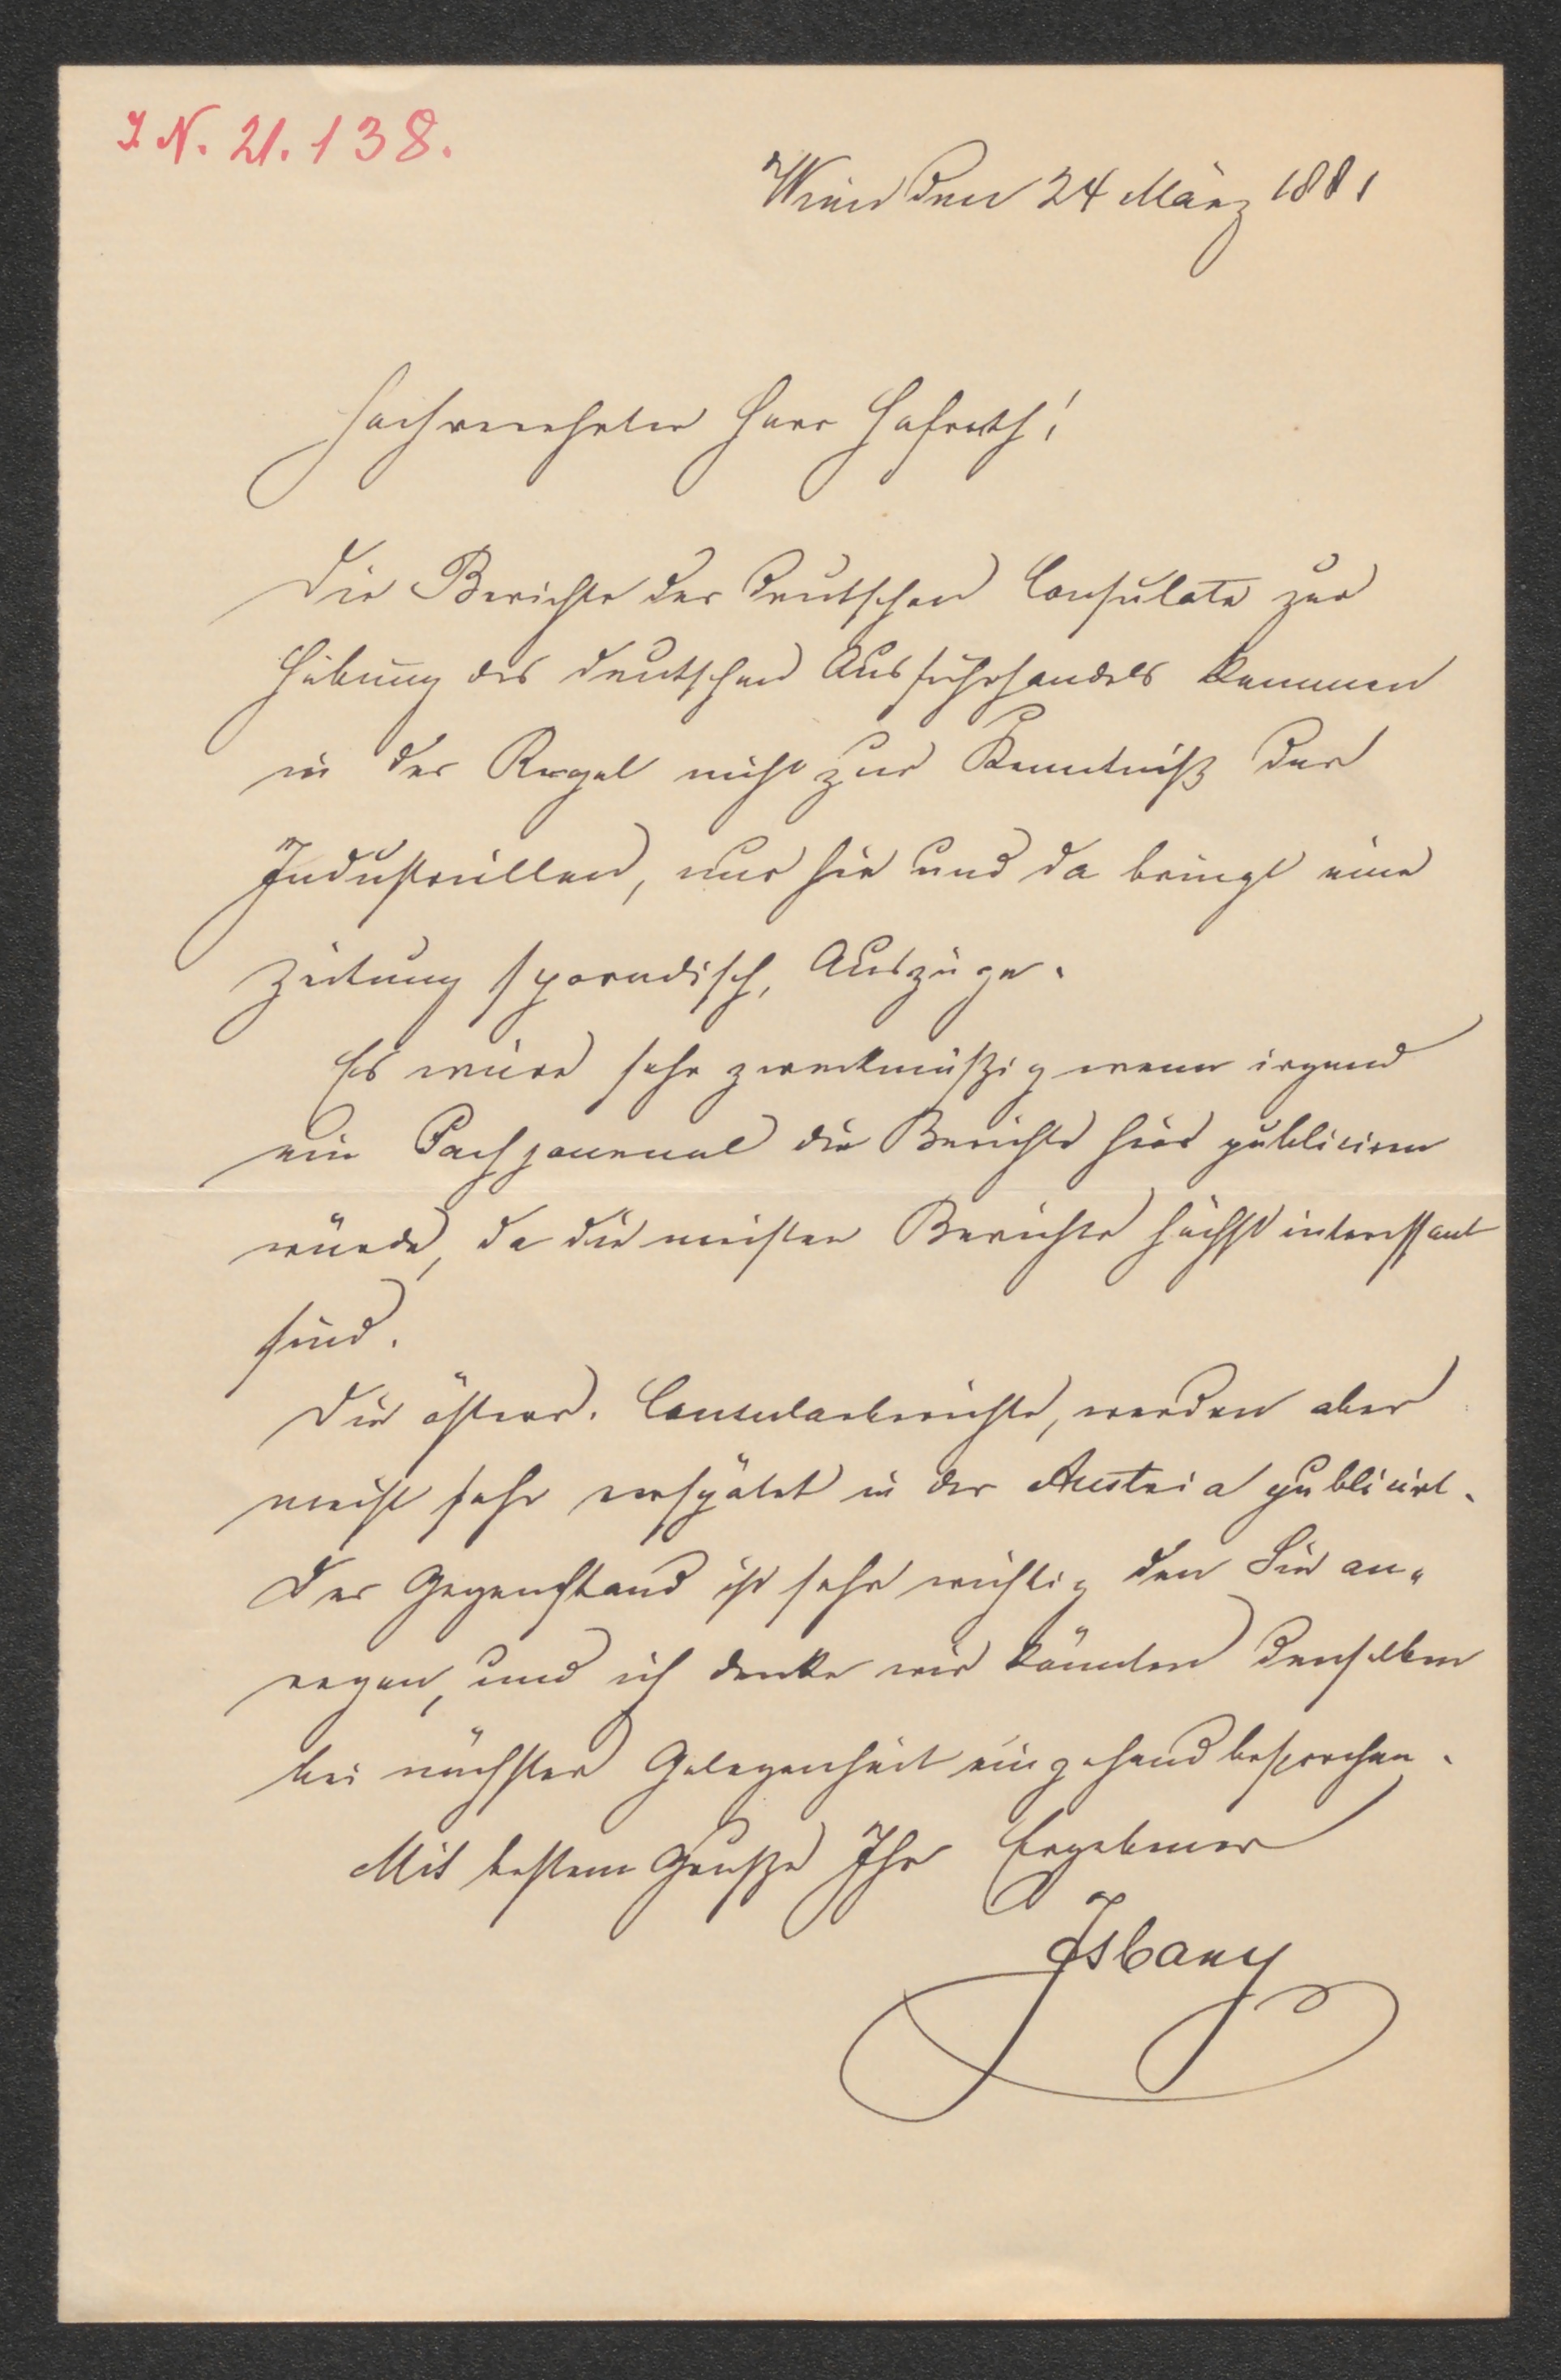 I. N. 21.138.
Wien den 24 März 1881
Hochverehrter Herr Hofrath!
Die Berichte der deutschen Consulate zur
Hebung des deutschen Ausfuhrhandels kommen
in der Regel nicht zur Kenntniß der
Industriellen, nur hie und da bringt eine
Zeitung sporadisch, Auszüge.
Es wäre sehr zweckmäßig wenn irgend
ein Fachjournal die Berichte hier publiciren
würde, da die meisten Berichte höchst interessant
sind.
Die österr. Consularberichte, werden aber
meist sehr verspätet in der Austria publicirt.
Der Gegenstand ist sehr wichtig den Sie an„
regen, und ich denke wir könnten denselben
bei nächster Gelegenheit eingehend besprechen.
Mit bestem Gruße Ihr Ergebener
Isbary